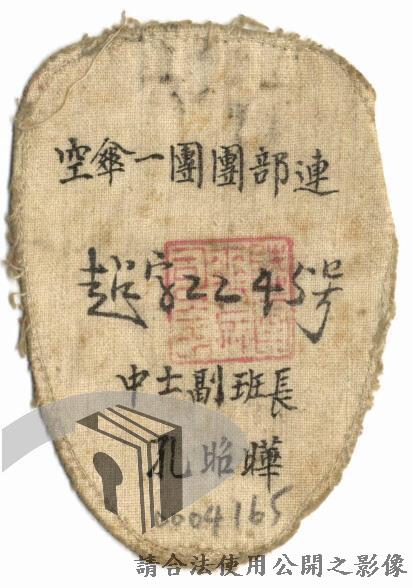 空傘一團團部連
趙字2245号
中士副班長
孔昭曄
0004165
請合法使用公開之影像